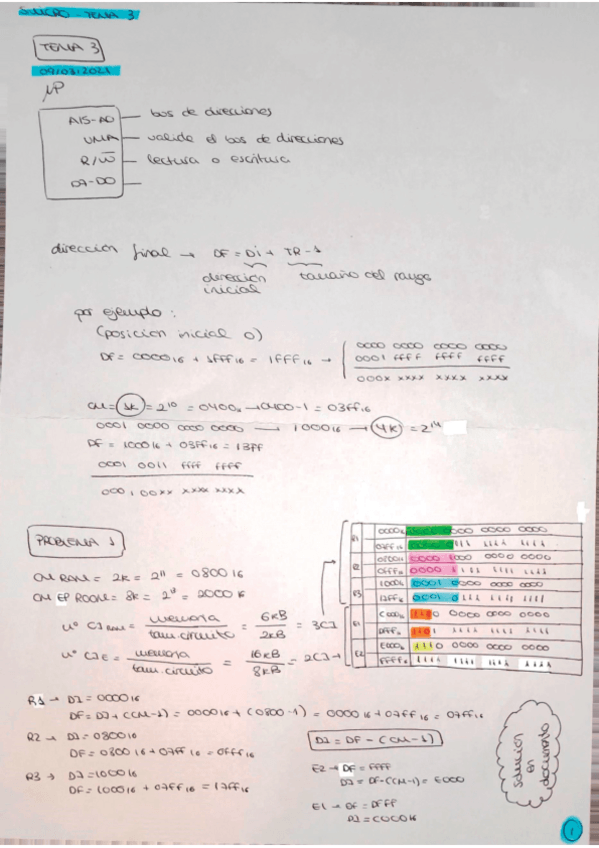 S.MICRO - TEMA 3
TEMA 3
09/03/2021
μP
A15-A0 — bus de direcciones
VMA — valida el bus de direcciones
R/W̅ — lectura o escritura
D7-D0 —
dirección final → DF = Di + TR-1
dirección inicial
tamaño del rango
por ejemplo:
(posicion inicial 0)
DF = 0000₁₆ + 1FFF₁₆ = 1FFF₁₆ →
0000 0000 0000 0000
0001 FFFF FFFF FFFF
000X XXXX XXXX XXXX
CM = 1K = 2¹⁰ = 0400₁₆ → 0400-1 = 03FF₁₆
0001 0000 0000 0000 → 1000₁₆ → 4K = 2¹⁴
DF = 1000₁₆ + 03FF₁₆ = 13FF
0001 0011 FFFF FFFF
0001 00XX XXXX XXXX
PROBLEMA 1
CM RAM = 2K = 2¹¹ = 0800₁₆
CM EPROM = 8K = 2¹³ = 2000₁₆
nº CI RAM = memoria / tam. circuito = 6KB / 2KB = 3CI
nº CI E = memoria / tam. circuito = 16KB / 8KB = 2CI →
R1 0000₁₆ 0000 0000 0000 0000
07FF₁₆ 1111 1111 1111
R2 0800₁₆ 0000 1000 0000 0000
0FFF₁₆ 0000 1111 1111 1111
R3 1000₁₆ 0001 0000 0000 0000
17FF₁₆ 0001 0111 1111 1111
E1 C000₁₆ 1100 0000 0000 0000
DFFF₁₆ 1101 1111 1111 1111
E2 E000₁₆ 1110 0000 0000 0000
FFFF₁₆ 1111 1111 1111 1111
R1 → DI = 0000₁₆
DF = DI + (CM-1) = 0000₁₆ + (0800-1) = 0000₁₆ + 07FF₁₆ = 07FF₁₆
R2 → DI = 0800₁₆
DF = 0800₁₆ + 07FF₁₆ = 0FFF₁₆
R3 → DI = 1000₁₆
DF = 1000₁₆ + 07FF₁₆ = 17FF₁₆
DI = DF - (CM-1)
E2 → DF = FFFF
DI = DF-(CM-1) = E000
E1 → DF = DFFF
DI = C000₁₆
solución
en
documento
1